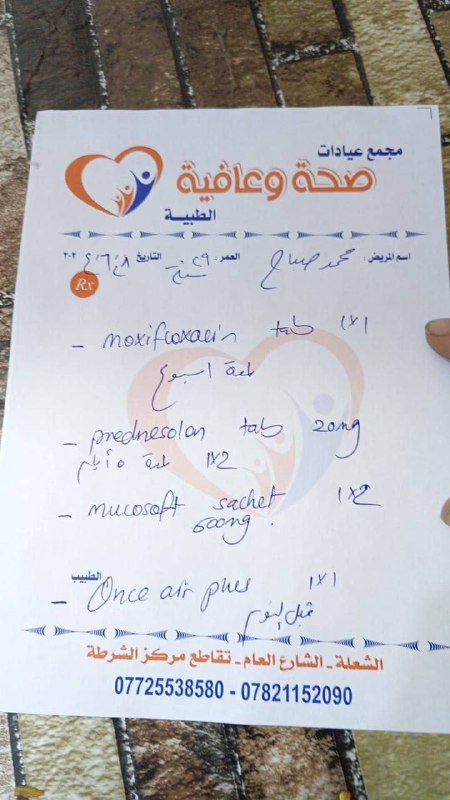 مجمع عيادات
صحة وعافية
الطبيــة
اسم المريض: محمد صباح العمر: ٢٩ سنة التاريخ ٨/٦/٢٠٢٤
Rx
- moxifloxacin tab 1x1
لمدة اسبوع
- prednesolon tab 20mg
1x2 لمدة ٥ أيام
- mucosoft sachet 1x2
600mg.
الطبيب
- Once air plus 1x1
قبل النوم
الشعلة - الشارع العام - تقاطع مركز الشرطة
07725538580 - 07821152090